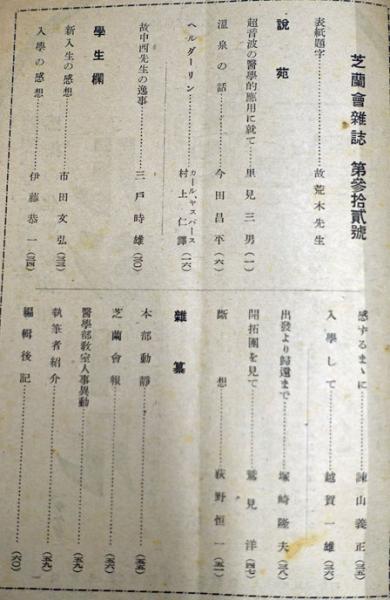 芝蘭會雜誌 第參拾貳號
表紙題字……故荒木先生
說苑
超音波の醫學的應用に就て……里見三男(一)
溫泉の話……今田昌平(六)
ヘルダーリン……カール、ヤスパース 村上仁譯(一六)
故中西先生の逸事……三戸時雄(三〇)
學生欄
新入生の感想……市田文弘(三三)
入學の感想……伊藤恭一(三四)
感ずるまゝに……諫山義正(三五)
入學して……越賀一雄(三六)
出發より歸還まで……塚崎隆夫(三八)
開拓團を見て……鷲見洋(四七)
斷想……荻野恒一(五一)
雜纂
本部動靜……(五五)
芝蘭會報……(五六)
醫學部敎室人事異動……(五九)
執筆者紹介……(五九)
編輯後記……(六〇)